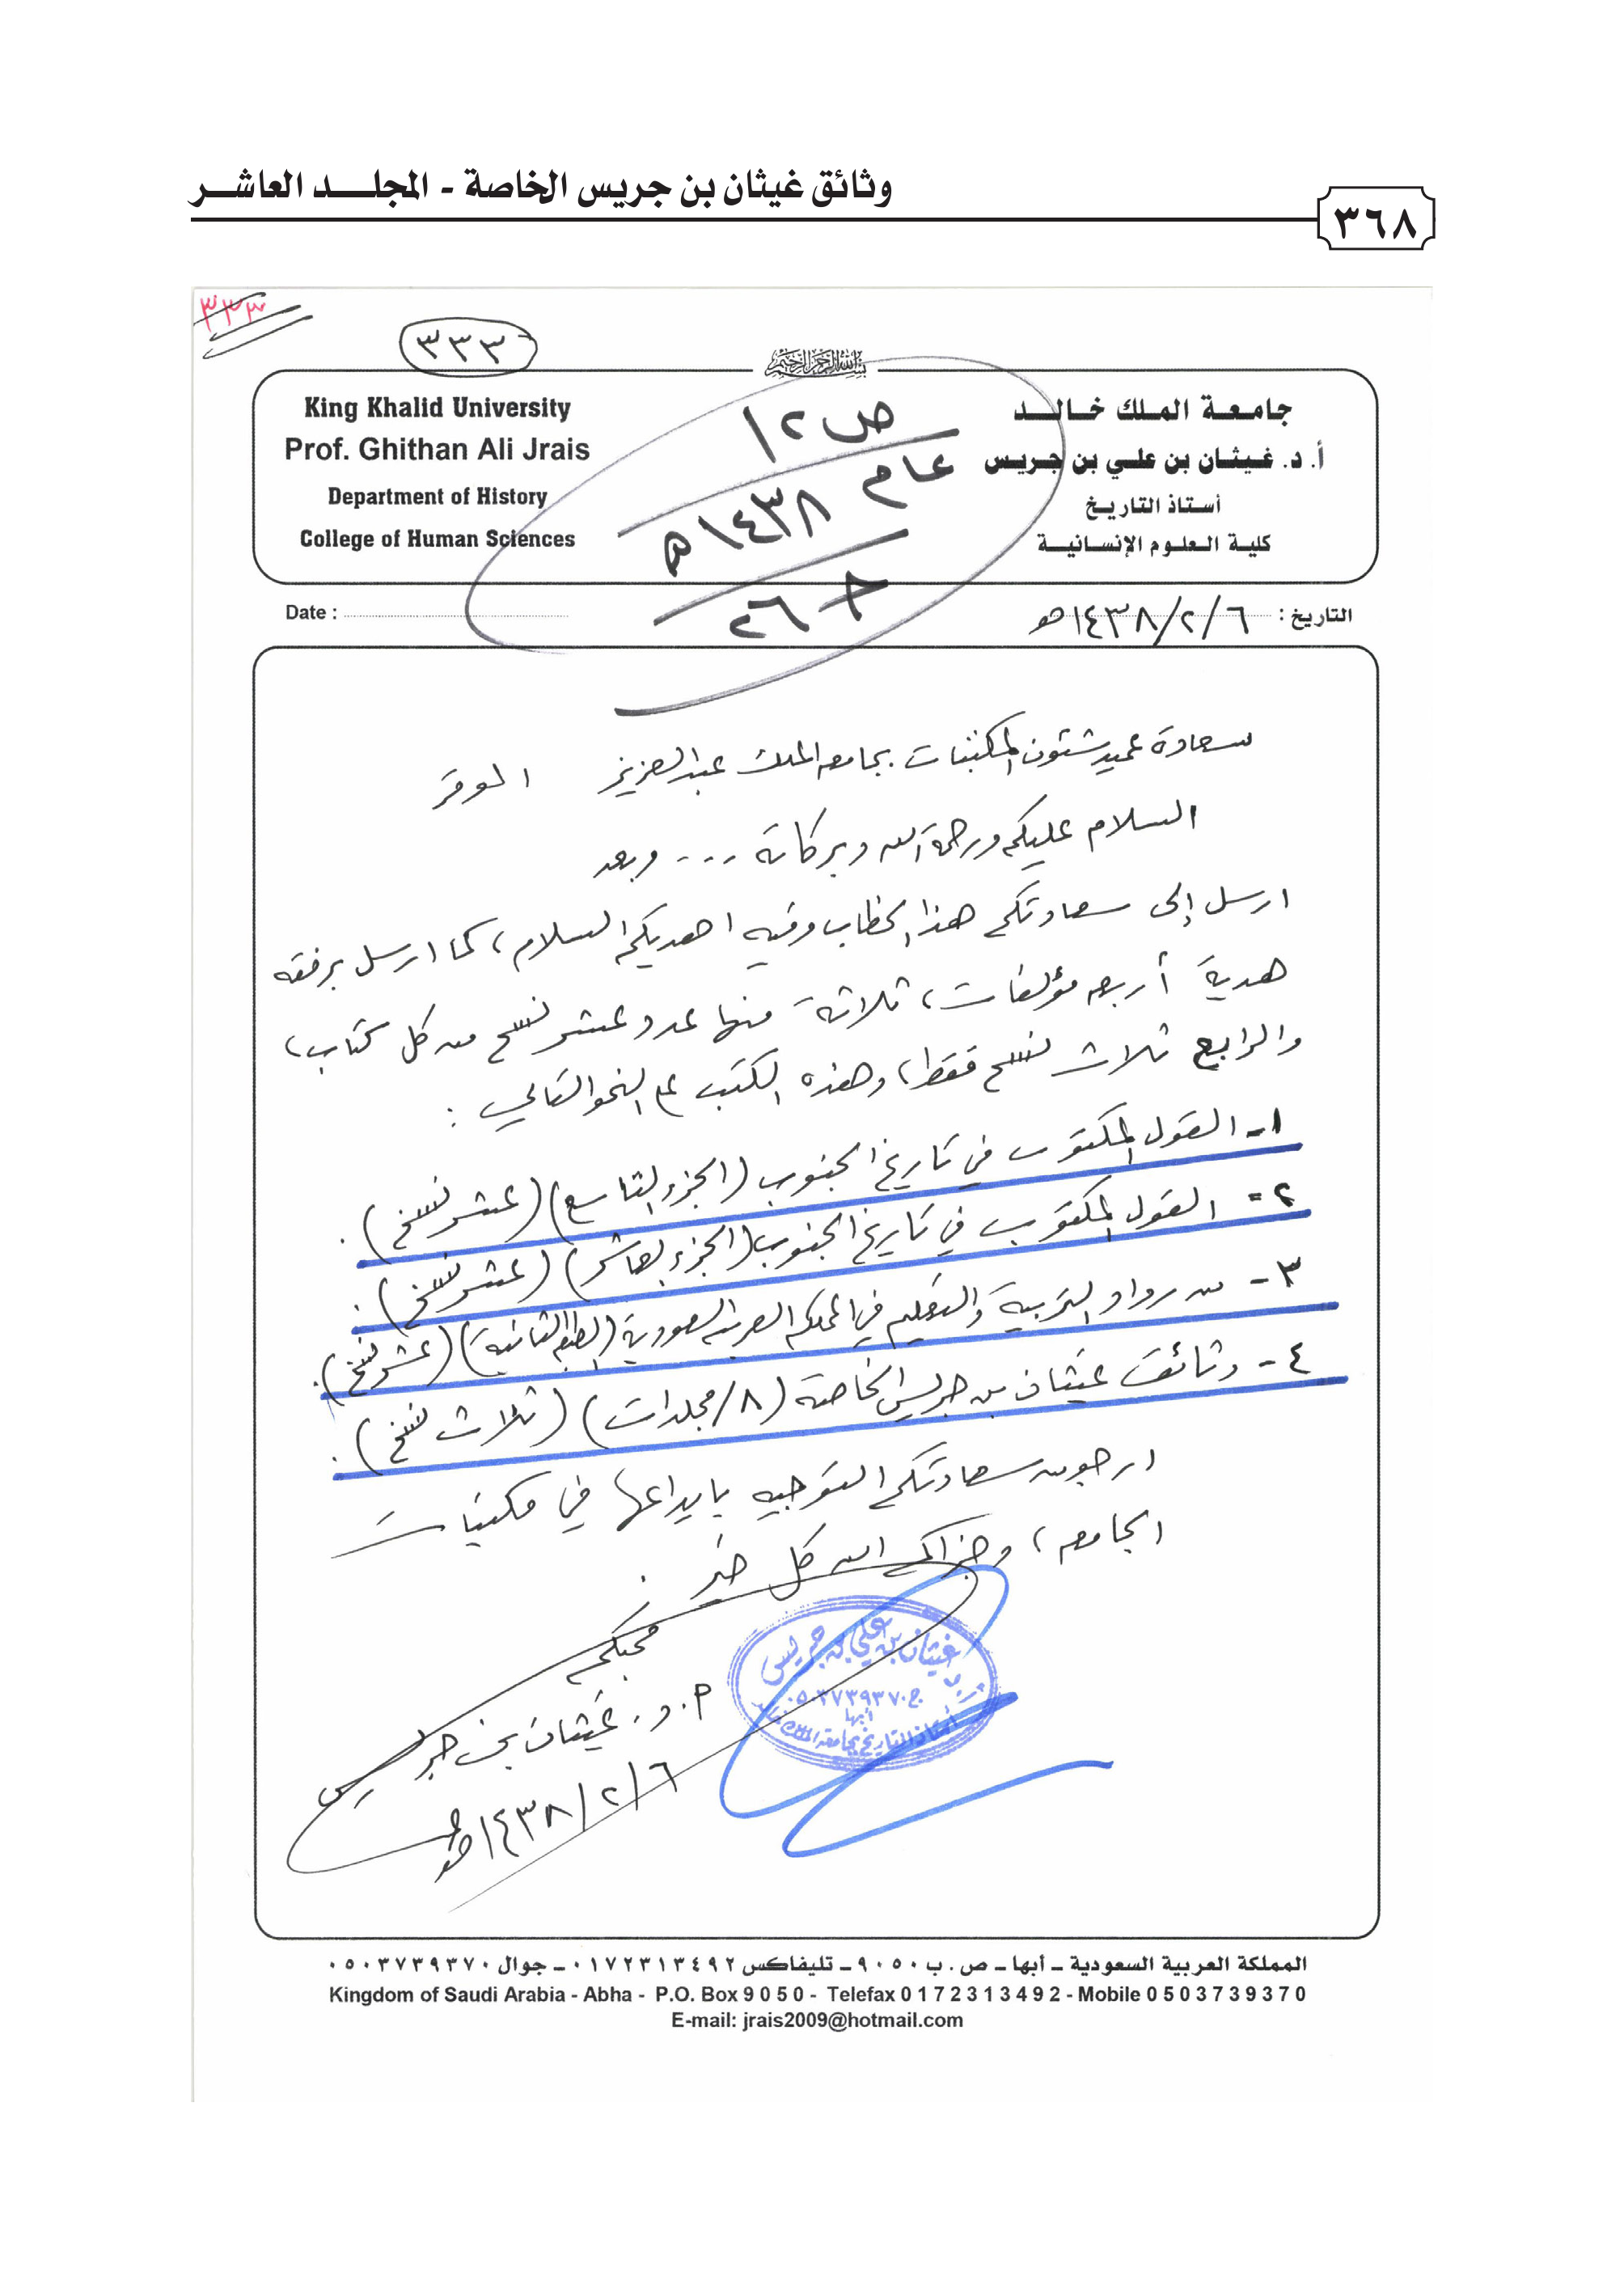 وثائق غيثان بن جريس الخاصة - المجلد العاشر
٣٦٨
٣٣٣
٣٣٣
بسم الله الرحمن الرحيم
King Khalid University
Prof. Ghithan Ali Jrais
Department of History
College of Human Sciences
جامعة الملك خالد
أ. د. غيثان بن علي بن جريس
أستاذ التاريخ
كلية العلوم الإنسانية
ص ١٢
عام
١٤٣٨ هـ
Date :
التاريخ : ٦/٢/١٤٣٨هـ
سعادة عميد شئون المكتبات بجامعة الملك عبدالعزيز الموقر
السلام عليكم ورحمة الله وبركاته ... وبعد
ارسل إلى سعادتكم هذا الخطاب وفيه اهديكم السلام، كما ارسل برفقه
هدية أربعة مؤلفات، ثلاثة منها عدد عشر نسخ من كل كتاب،
والرابع ثلاث نسخ فقط، وهذه الكتب على النحو التالي :
١- القول المكتوب في تاريخ الجنوب (الجزء التاسع) (عشر نسخ).
٢- القول المكتوب في تاريخ الجنوب (الجزء العاشر) (عشر نسخ).
٣- من رواد التربية والتعليم في المملكة العربية السعودية (الطبعة الثانية) (عشر نسخ).
٤- وثائق غيثان بن جريس الخاصة (٨/مجلدات) (ثلاث نسخ).
ارجو من سعادتكم التوجيه بايداعها في مكتبات
الجامعة، وجزاكم الله كل خير.
محبكم
أ. د. غيثان بن جريس
٦/٢/١٤٣٨هـ
غيثان بن علي بن جريس
ج.٠٥٠٣٧٣٩٣٧٠
أبها
أستاذ التاريخ بجامعة الملك خالد
المملكة العربية السعودية - أبها - ص. ب ٩٠٥٠ - تليفاكس ٠١٧٢٣١٣٤٩٢ - جوال ٠٥٠٣٧٣٩٣٧٠
Kingdom of Saudi Arabia - Abha - P.O. Box 9050 - Telefax 0172313492 - Mobile 0503739370
E-mail: jrais2009@hotmail.com